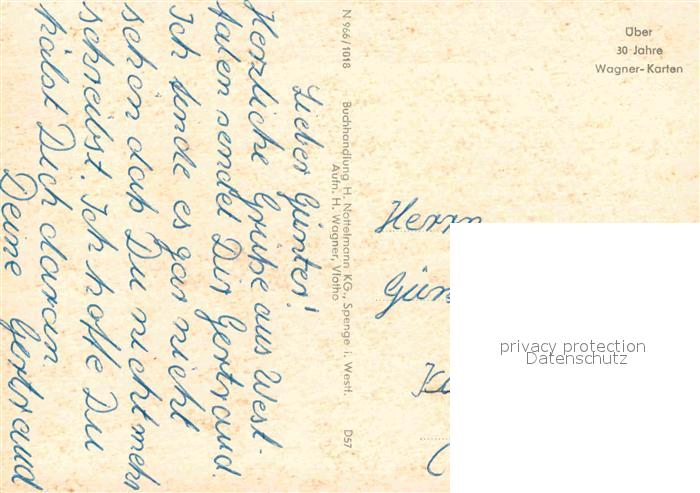 Lieber Günter!
Herzliche Grüße aus West-
falen sendet Dir Gertraud.
Ich finde es gar nicht
schön daß Du nicht mehr
schreibst. Ich hoffe Du
hälst Dich daran.
Deine Gertraud
N 966/1018 Buchhandlung H. Nottelmann KG., Spenge i. Westf. D57
Aufn. H. Wagner, Vlotho
Über
30 Jahre
Wagner-Karten
Herrn
Gün
privacy protection
Datenschutz